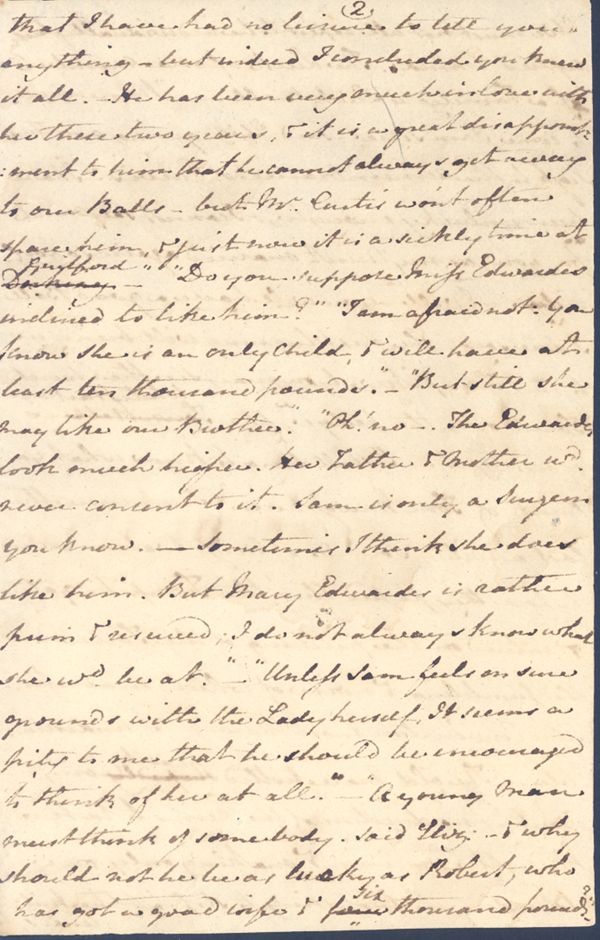 (2)
that I have had no leisure to tell you
anything – but indeed I concluded you knew
it all. – He has been very much in love with
her these two years, & it is a great disappoint=
:ment to him that he cannot always get away
to our Balls – but Mr. Curtis won't often
spare him, & just now it is a sickly time at
Guilford
Dorking – " "Do you suppose Miss Edwardes
inclined to like him?" "I am afraid not. You
know she is an only Child, & will have at
least ten thousand pounds." – "But still she
may like our Brother." "Oh! no –. The Edwardes
look much higher. Her Father & Mother wd.
never consent to it. Sam is only a Surgeon
you know. – Sometimes I think she does
like him. But Mary Edwardes is rather
prim & reserved; I do not always know what
she wd. be at." – "Unless Sam feels on sure
grounds with the Lady herself, It seems a
pity to me that he should be encouraged
to think of her at all." – "A young Man
must think of somebody. said Eliz: – & why
should not he be as lucky as Robert, who
six
has got a good wife & four thousand pounds?"